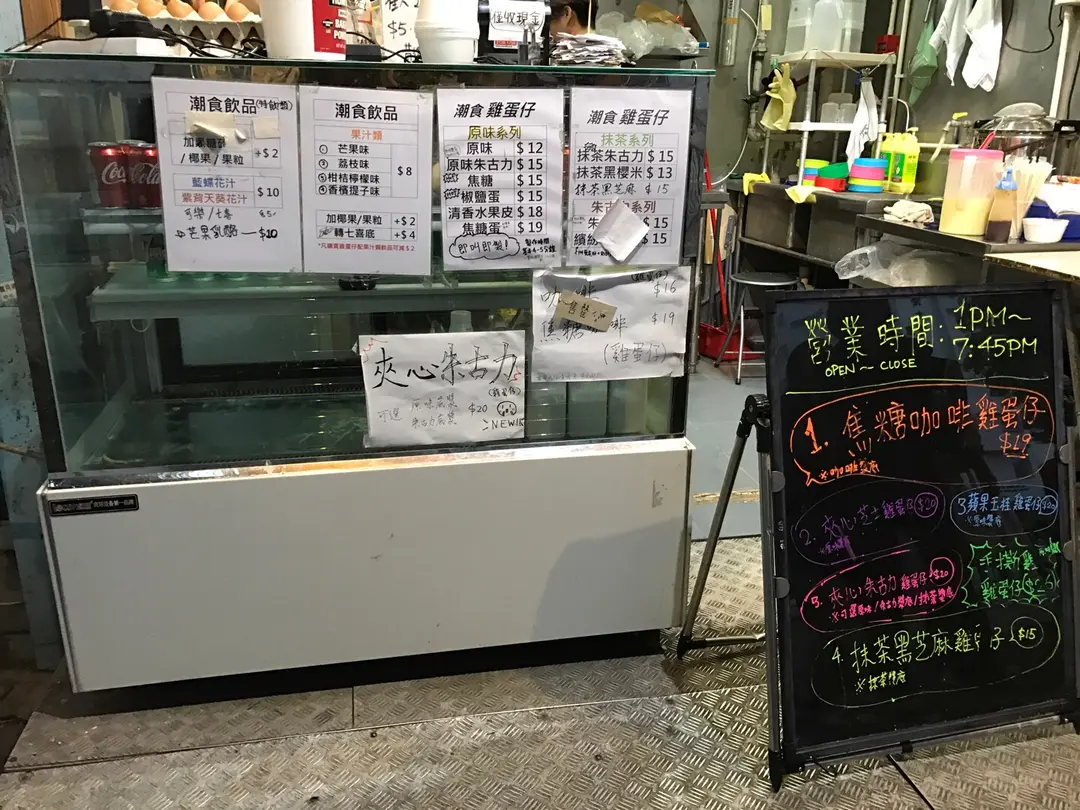 僅收現金
$5
Coca-Cola
潮食飲品(特飲類)
/ 椰果 / 果粒
+$ 2
藍蝶花汁
紫背天葵花汁
$ 10
可樂/七喜
芒果乳酸 $10
潮食飲品
果汁類
① 芒果味
② 荔枝味
③ 柑桔檸檬味
④ 香檳提子味
$ 8
加椰果/果粒 +$ 2
轉七喜底 +$ 4
潮食 雞蛋仔
原味系列
原味 $ 12
原味朱古力 $ 15
焦糖 $ 15
椒鹽蛋 $ 15
清香水果皮 $ 18
焦糖蛋 $ 19
即叫即製!
製作時間
潮食 雞蛋仔
抹茶系列
抹茶朱古力 $ 15
抹茶黑櫻米 $ 13
抹茶黑芝麻 $ 15
$ 15
$ 15
(雞蛋仔)
$16
焦糖 啡 $19
(雞蛋仔)
夾心朱古力
(雞蛋仔)
可選 原味底漿
朱古力底漿
$20
NEW
營業時間: 1PM~
7:45PM
OPEN ~ CLOSE
1. 焦糖咖啡雞蛋仔
$19
2. 夾心芝士雞蛋仔 $20
3 蘋果玉桂雞蛋仔 $20
手撕雞
雞蛋仔
5. 夾心朱古力雞蛋仔 $20
※可選原味/朱古力漿底/抹茶漿底
4. 抹茶黑芝麻雞 仔 $15
※抹茶漿底